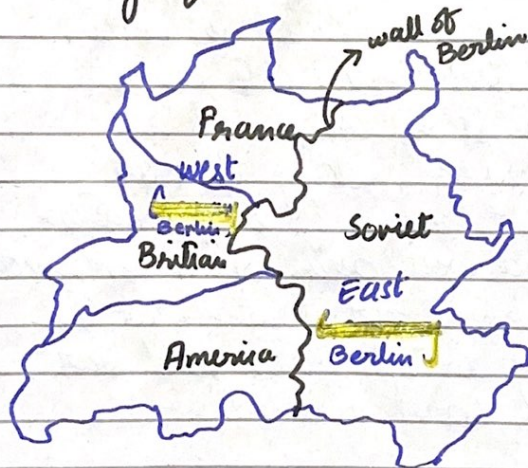 wall of
Berlin
France
West
Berlin
Britian
Soviet
East
Berlin
America